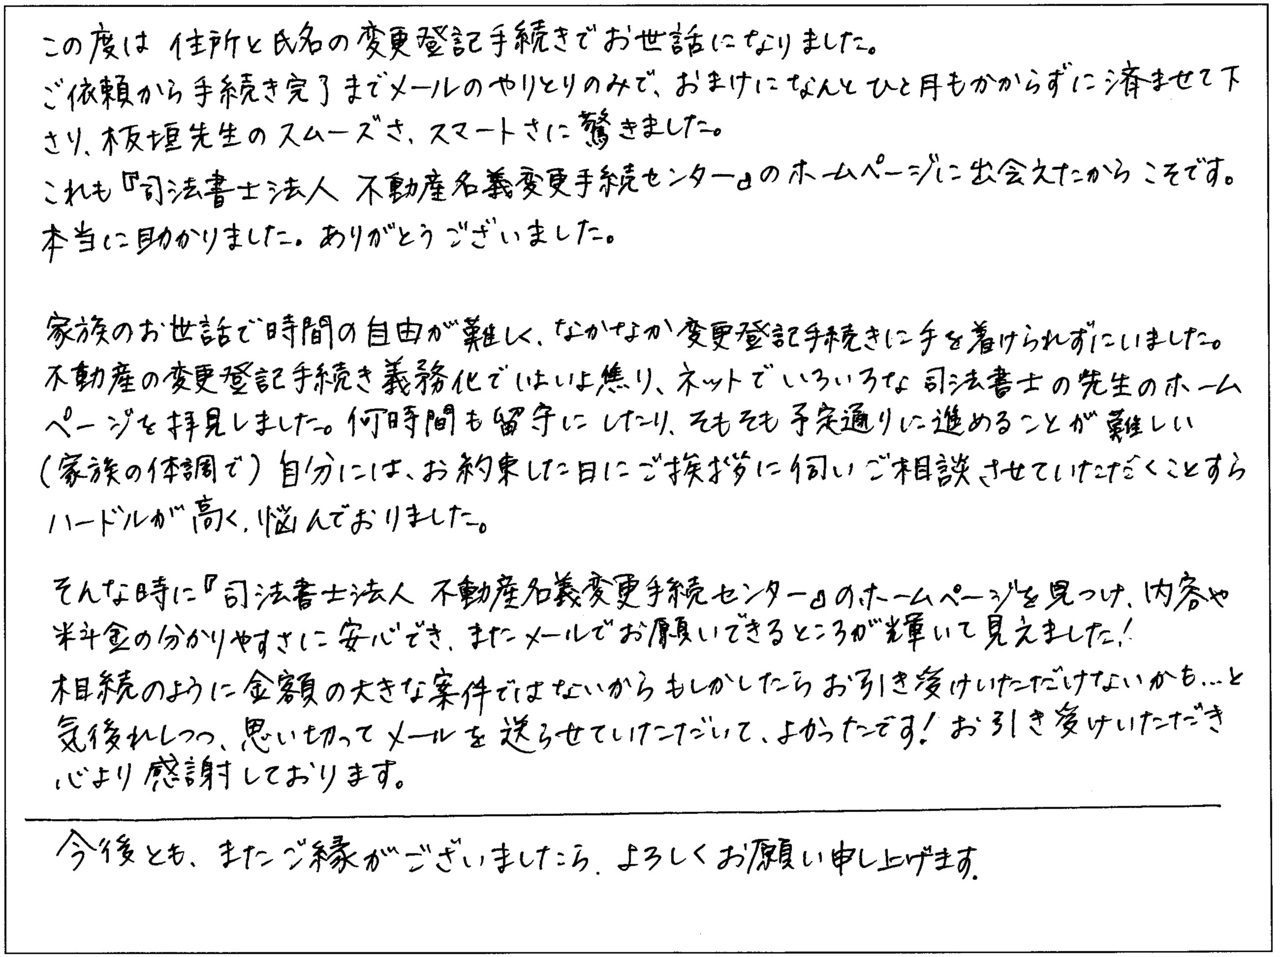 この度は 住所と氏名の変更登記手続きでお世話になりました。
ご依頼から手続き完了までメールのやりとりのみで、おまけになんとひと月もかからずに済ませて下
さり、板垣先生のスムーズさ、スマートさに驚きました。
これも『司法書士法人 不動産名義変更手続センター』のホームページに出会えたからこそです。
本当に助かりました。ありがとうございました。
家族のお世話で時間の自由が難しく、なかなか変更登記手続きに手を着けられずにいました。
不動産の変更登記手続き義務化ではいよ焦り、ネットでいろいろな司法書士の先生のホーム
ページを拝見しました。何時間も留守にしたり、そもそも予定通りに進めることが難しい
(家族の体調で) 自分には、お約束した日にご挨拶に伺いご相談させていただくことすら
ハードルが高く、悩んでおりました。
そんな時に『司法書士法人 不動産名義変更手続センター』のホームページを見つけ、内容や
料金の分かりやすさに安心でき、またメールでお願いできるところが輝いて見えました!
相続のように金額の大きな案件ではないからもしかしたらお引き受けいただけないかも...と
気後れしつつ、思い切ってメールを送らせていただいて、よかったです! お引き受けいただき
心より感謝しております。
今後とも、またご縁がございましたら、よろしくお願い申し上げます.